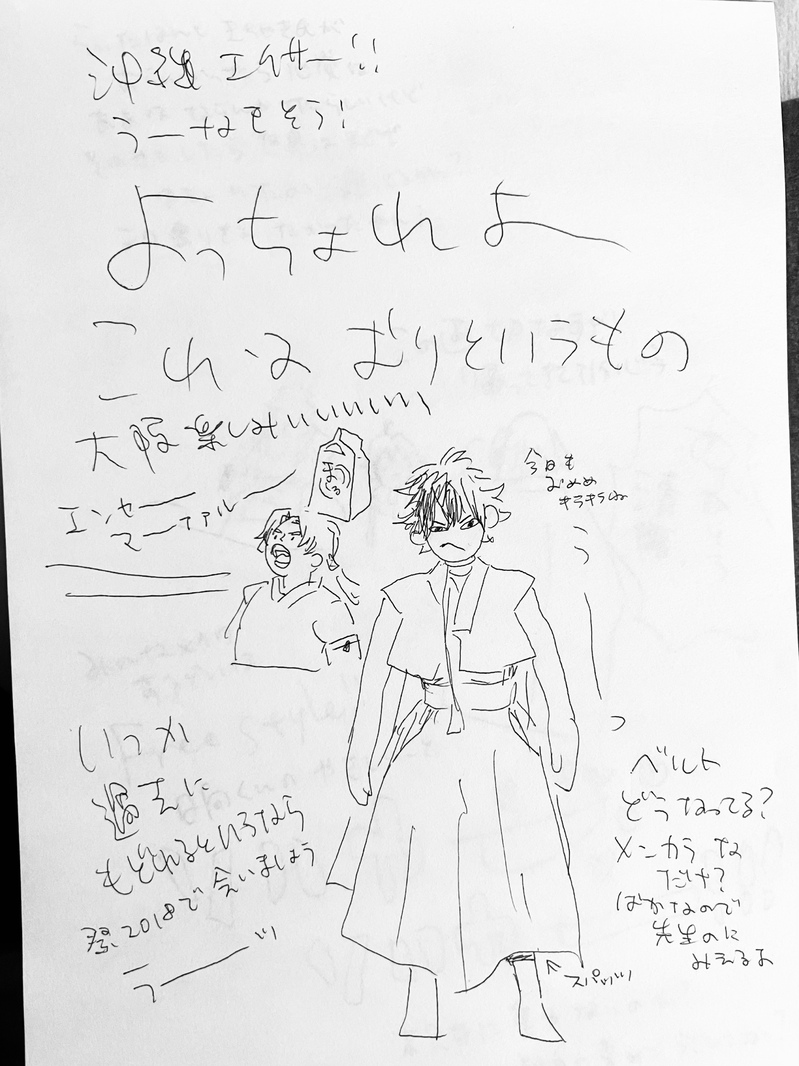 沖縄エイサー!!
うーなもそう!
よっちょれよー
これはむりというもの
大阪楽しみいいいいいい
エンヤー
マーァルー
今日も
おめめ
キラキラね
うーっ
いつか
過去に
もどれるというなら
祭2018で会いましょう
うーッ
ベルト
どうなってる?
メンカラな
だけ?
ばかなので
先生のに
みえるよ
スパッツ